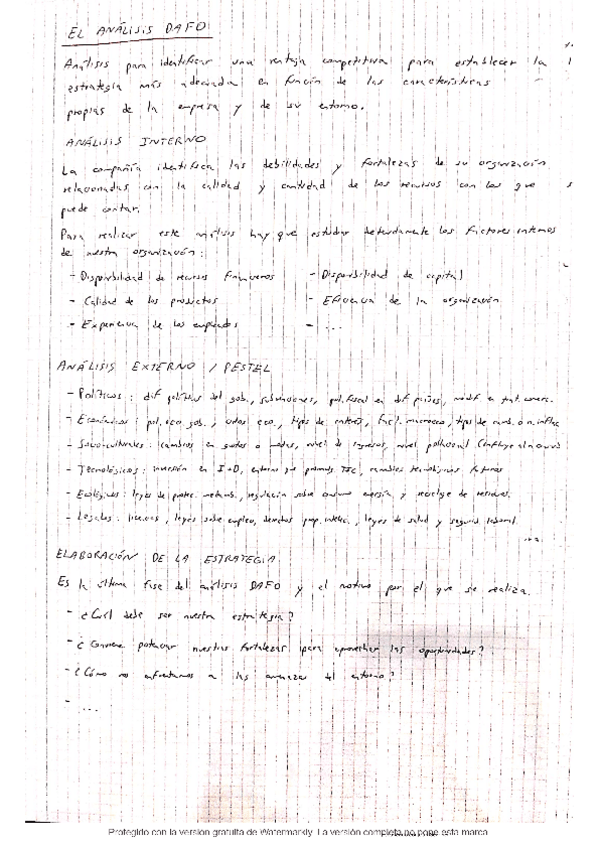 EL ANÁLISIS DAFO
Análisis para identificar una ventaja competitiva para establecer la
estrategia más adecuada en función de las características
propias de la empresa y de su entorno.
ANÁLISIS INTERNO
La compañía identifica las debilidades y fortalezas de su organización
relacionadas con la calidad y cantidad de los recursos con los que
puede contar.
Para realizar este análisis hay que estudiar detenidamente los factores internos
de nuestra organización:
- Disponibilidad de recursos financieros - Disponibilidad de capital
- Calidad de los productos - Eficiencia de la organización
- Experiencia de los empleados - ...
ANÁLISIS EXTERNO / PESTEL
- Políticos: dif políticas del gob., subvenciones, pol. fiscal en dif países, modif en trat. comerc.
- Económicos: pol. eco. gob., ciclos eco., tipos de interés, fact. macroeco, tipos de camb. o n. inflac
- Socio-culturales: cambios en gustos o modas, nivel de ingresos, nivel poblacional
- Tecnológicos: inversión en I+D, entorno que promueva TIC, cambios tecnológicos futuros
- Ecológicos: leyes de protec. medioamb., regulación sobre consumo energía y reciclaje de residuos.
- Legales: licencias, leyes sobre empleo, derechos prop. intelec., leyes de salud y seguridad laboral.
ELABORACIÓN DE LA ESTRATEGIA
Es la última fase del análisis DAFO y el motivo por el que se realiza.
- ¿Cuál debe ser nuestra estrategia?
- ¿Conviene potenciar nuestras fortalezas para aprovechar las oportunidades?
- ¿Cómo nos enfrentamos a las amenazas del entorno?
- ....
Protegido con la versión gratuita de Watermarkly. La versión completa no pone esta marca.